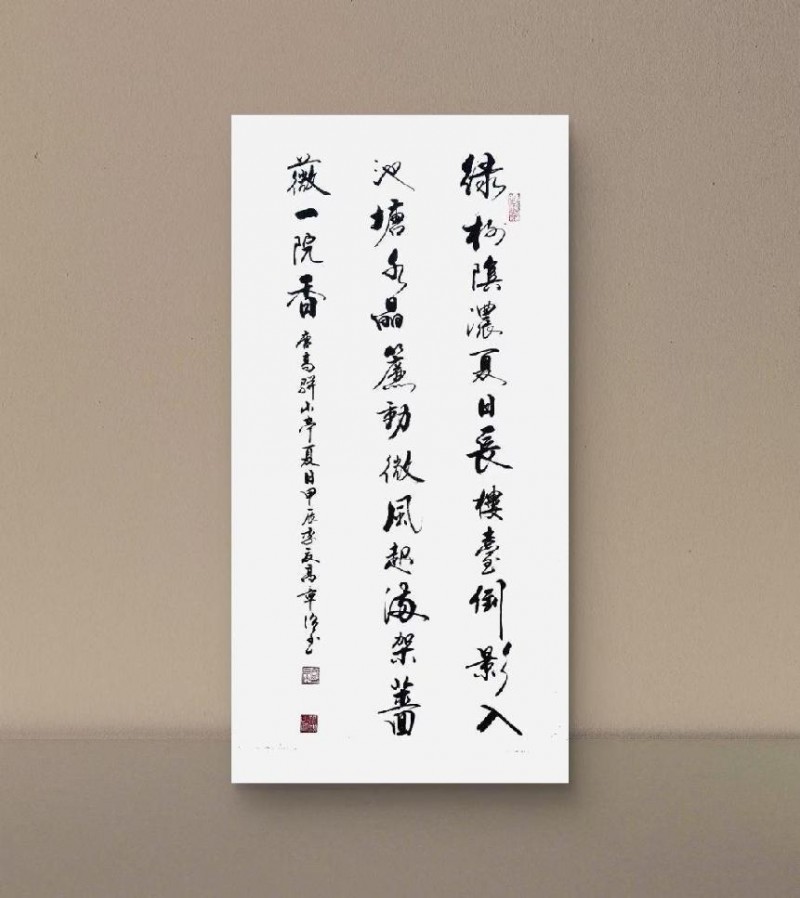 綠樹陰濃夏日長樓臺倒影入
池塘水晶簾動微風起滿架薔
薇一院香
唐高駢山亭夏日甲辰季夏高章書